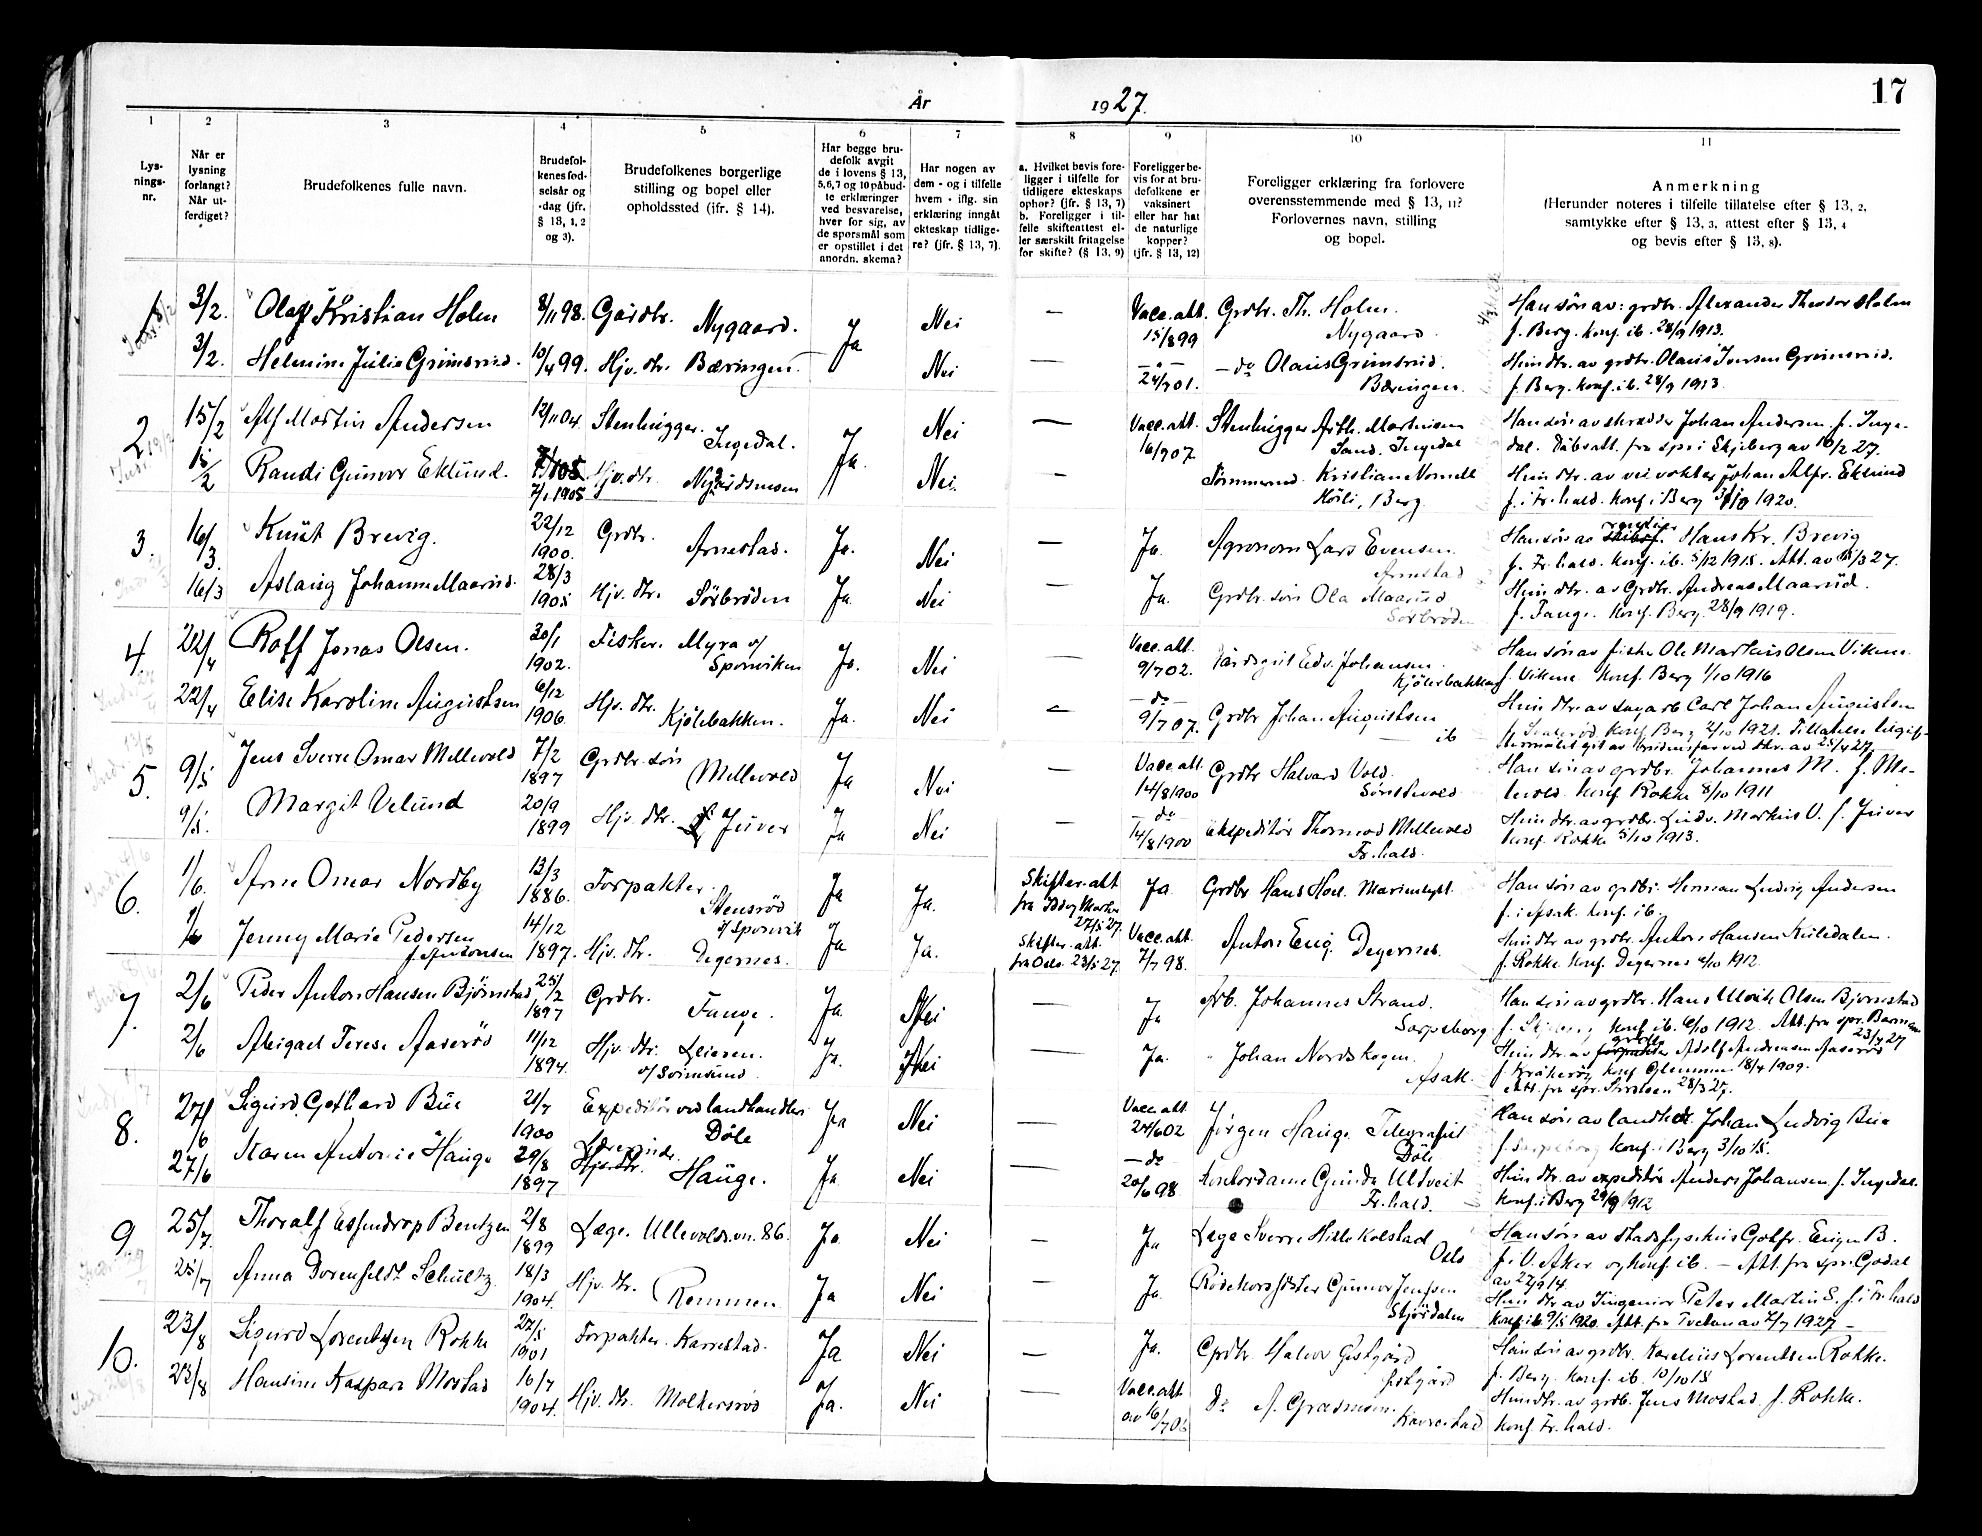 17
År 1927.
1 2 3 4 5 6 7 8 9 10 11
Lys-
nings-
nr.
Når er
lysning
forlangt?
Når ut-
ferdiget?
Brudefolkenes fulle navn.
Brudefol-
kenes fød-
selsår og
-dag (jfr.
§ 13, 1, 2
og 3).
Brudefolkenes borgerlige
stilling og bopel eller
opholdssted (jfr. § 14).
Har begge bru-
defolk avgit
de i lovens § 13,
5,6,7 og 10 påbud-
te erklæringer
ved besvarelse,
hver for sig, av
de spørsmål som
er opstillet i det
anordn. skema?
Har nogen av
dem - og i tilfelle
hvem - iflg. sin
erklæring inngått
ekteskap tidlige-
re? (jfr. § 13, 7).
a. Hvilket bevis fore-
ligger i tilfelle for
tidligere ekteskaps
ophør? (jfr. § 13, 7)
b. Foreligger i til-
felle skifteattest el-
ler særskilt fritagelse
for skifte? (§ 13, 9)
Foreligger be-
vis for at bru-
defolkene er
vaksinert
eller har hat
de naturlige
kopper?
(jfr. § 13, 12)
Foreligger erklæring fra forlovere
overensstemmende med § 13, 11?
Forlovernes navn, stilling
og bopel.
Anmerkning
(Herunder noteres i tilfelle tillatelse efter § 13, 2,
samtykke efter § 13, 3, attest efter § 13, 4
og bevis efter § 13, 8).
1 3/2. Olaf Kristian Holm 8/11 98. Gårdbr. Nygaard. Ja Nei — Vacc.att. 15/8 99 Grdbr. Th. Holm. Nygaard. Han søn av: grdbr. Alexander Theodor Holm
f. Berg. konf. ib. 28/9 1913.
3/2. Helmine Julie Grimsrud. 10/4 99. Hjv. dtr. Bæringen. Nei — 24/7 01. — do Olaus Grimsrud. Bæringen. Hun dtr. av grdbr. Olaus Iversen Grimsrud.
f. Berg. konf. ib. 28/9 1913.
2 15/2 Alf Martin Andersen 12/11 04. Stenhugger. Ingedal. Ja. Nei — Vacc.att. 16/7 07 Stenhugger Arth. Martinsen Sand. Ingedal Han søn av skrædder Johan Andersen f. Inge-
dal. Dåbsatt. fra spr. i Skjeberg av 16/2 27.
15/2 Randi Gunvor Eklund. 7/1 1905 Hjv. dtr. Nei. — Kristian Hun dtr. av veivokter Johan Alfr. Eklund
f. i Fr.hald. konf. i Berg 3/10 1920.
3. 16/3. Knut Brevig. 22/12 1900. Grdbr. Arnestad. Ja. Nei — Ja. Agronom Lars Evensen Arnestad Han søn av Hans Kr. Brevig
f. Fr.hald. konf. ib. 5/12 1915. Att. av 27.
16/3 Aslaug Johanne Maarud. 28/3 1905 Hjv. dtr. Sörbröden Ja Nei — Ja. Grdbr. søn Ola Maarud Sörbröden Hun dtr. av Grdbr. Andreas Maarud.
f. Tange. konf. Berg 28/9 1919.
4. 22/4 Rolf Jonas Olsen. 20/1 1902. Fisker. Myra v/ Sponviken Ja. Nei — Vacc.att. 9/7 02. Edv. Johansen. Kjölebakken Han søn av fisker Ole Markus Olsen Vikene.
f. Vikene konf. Berg 1/10 1916
22/4 Elise Karoline Augustsen 6/12 1906. Hjv. dtr. Kjölebakken. Ja. Nei — do 9/7 07. Grdbr Johan Augustsen — ib Hun dtr. av sagarb Carl Johan Augustsen
konf. Berg 2/10 1921.
5. 9/5 Jens Sverre Omar Mellevold 7/2 1897 Grdbr. søn Mellevold Ja Nei — Vacc.att. 14/8 1900 Grdbr Halvard Vold. Han søn av grdbr. Johannes M. f. Me-
levold. konf. Rokke 8/10 1911
9/5. Margit Velund 20/9 1899 Hjv. dtr. Juver Ja Nei — do 14/8 1900 Ekspeditør Thormod Mellevold Fr.hald. Hun dtr. av grdbr. Ludv. Markus V. f. Juver
konf. Rokke 5/10 1913.
6. 1/6. Arne Omar Nordby 13/3 1886. Forpakter. Stensrød v/ Sponvik Ja Ja. Skifter.att fra Idd og Marker 27/5 27. Ja. Grdbr Hans Hoel. Marienlyst. Han søn av grdbr. Herman Ludvig Andersen
f. i Asak. konf. ib.
1/6 Jenny Marie Pedersen f. Antonsen 14/12 1897. Hjv. dtr. Degernes. Ja Ja. Skifter.att. fra Oslo 23/5 27. Vacc.att. 7/7 98. Anton Erig. Degernes. Hun dtr. av grdbr. Anton Hansen Kuledalen.
f. Rokke. konf. Degernes 6/10 1912.
7. 2/6 Peder Anton Hansen Bjørnstad 25/2 1897 Grdbr. Tange. Ja Nei — Ja Arb. Johannes Strand. Sarpsborg Han søn av grdbr. Hans Ulrik Olsen Bjørnestad
konf. ib. 6/10 1912. Att. fra spr. 23/4 27
2/6 Abigael Terese Aaserød 11/12 1894. Hjv. dtr. Leiren. v/ Svinesund. Ja. Nei — Ja. Johan Nordskogen. Asak. Hun dtr. av Adolf Andreasen Aaserød
f. Kråkerøy konf Glemmen 18/4 1909.
Att. fra spr. 28/3 27.
8. 27/6 Sigurd Gothard Bue 21/7 1900 Expeditör ved landhandleri Döle Ja Nei — Vacc.att. 24/6 02 Jørgen Hauge Telegrafist Döle Han søn av landhdr. Johan Ludvig Bue
f. Sarpsborg konf. i Berg 3/10 15.
27/6 Karen Antonie Hauge 29/8 1897 Lærerinde. Hauge. Ja Nei — do 20/6 98. Kontordame Gunda Ultveit Fr.hald. Hun dtr. av expeditör Anders Johansen f. Ingedal.
konf. i Berg 29/9 1912
9. 25/7. Thoralf Essendrop Bentzen 2/8 1899 Læge. Ullevoldsvn. 86. Ja Nei — Ja Læge Sverre Hille Kolstad Oslo Han søn av Stadsfysikus Gotfr. Eugen B.
f. i V. Aker og konf. ib. — Att. fra spr. Gjødal
av 27/9 14.
25/7 Anna Dorenfeldt Schultz 18/3 1904. Hjv. dtr. Remmen Ja Nei — Ja. Rødekorssøster Gunvor Jensen Stjördalen Hun dtr. av Ingeniør Peter Martin S. f. i Fr.hald
konf. ib 9/5 1920. Att. fra Tveten av 7/7 1927 —
10. 23/8 Sigurd Lorentzen Rokke 27/5 1901 Forpakter. Karrestad. Ja Nei — Ja. Grdbr. Halvor Gistgård Gistgård Han søn av grdbr. Karelius Lorentsen Rokke.
f. Berg. konf. ib. 10/10 15
23/8 Hansine Kaspara Mostad 16/7 1904. Hjv. dtr. Molkersrød Ja. Nei — Vacc.att av 16/7 06 Do A. Græsmoen. Karrestad Hun dtr. av grdb. Jens Mostad. f. Rokke.
konf. Fr.hald.